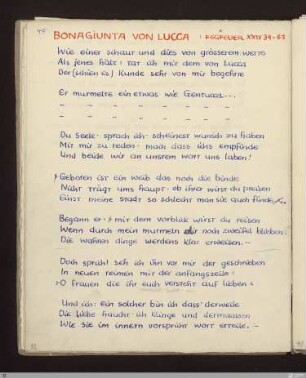 BONAGIUNTA VON LUCCA : FEGFEUER XXIV 34-63
Wie einer schaut und dies von grösserem werte
Als jenes hält: tat ich mir dem von Lucca
Der (schien es) Kunde sehr von mir begehrte
Er murmelte ein etwas wie Gentucca...
– – – – –
– – – – –
Du Seele · sprach ich · scheinest wunsch zu haben
Mit mir zu reden · mach dass ichs empfinde
Und beide wir an unsrem wort uns laben!
› Geboren ist ein weib das noch die binde
Nicht trägt ums haupt · ob ihrer wirst du preisen
Einst meine stadt so schlecht man sie auch finde
Begann er · mit dem vorblick wirst du reisen
Wenn durch mein murmeln dir noch zweifel blieben
Die wahren dinge werdens klar erweisen. –
Doch sprich! seh ich ihn vor mir der geschrieben
In neuen reimen mit der anfangszeile:
›O Frauen die ihr euch versteht auf lieben‹
Und ich: Ein solcher bin ich dass derweile
Die liebe haucht ich klinge und dermaassen
Wie sie im innern vorspricht wort erteile. –